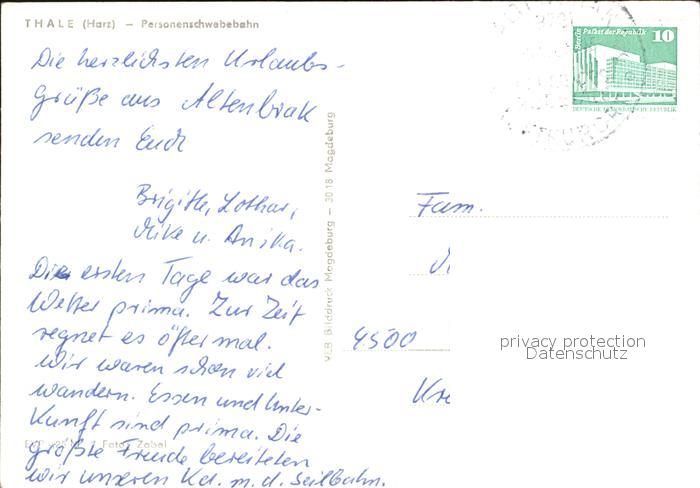 THALE (Harz) — Personenschwebebahn
Die herzlichsten Urlaubs-
grüße aus Altenbrak
senden Euch
Brigitte, Lothar,
Mike u. Anika.
Die ersten Tage war das
Wetter prima. Zur Zeit
regnet es öfter mal.
Wir waren schon viel
wandern. Essen und Unter-
kunft sind prima. Die
größte Freude bereiteten
wir unseren Kd. m. d. Seilbahn.
Foto: Zabel
VEB Bilddruck Magdeburg — 3018 Magdeburg
Berlin Palast der Republik 10
DEUTSCHE DEMOKRATISCHE REPUBLIK
Fam.
4500
privacy protection
Datenschutz
Kre